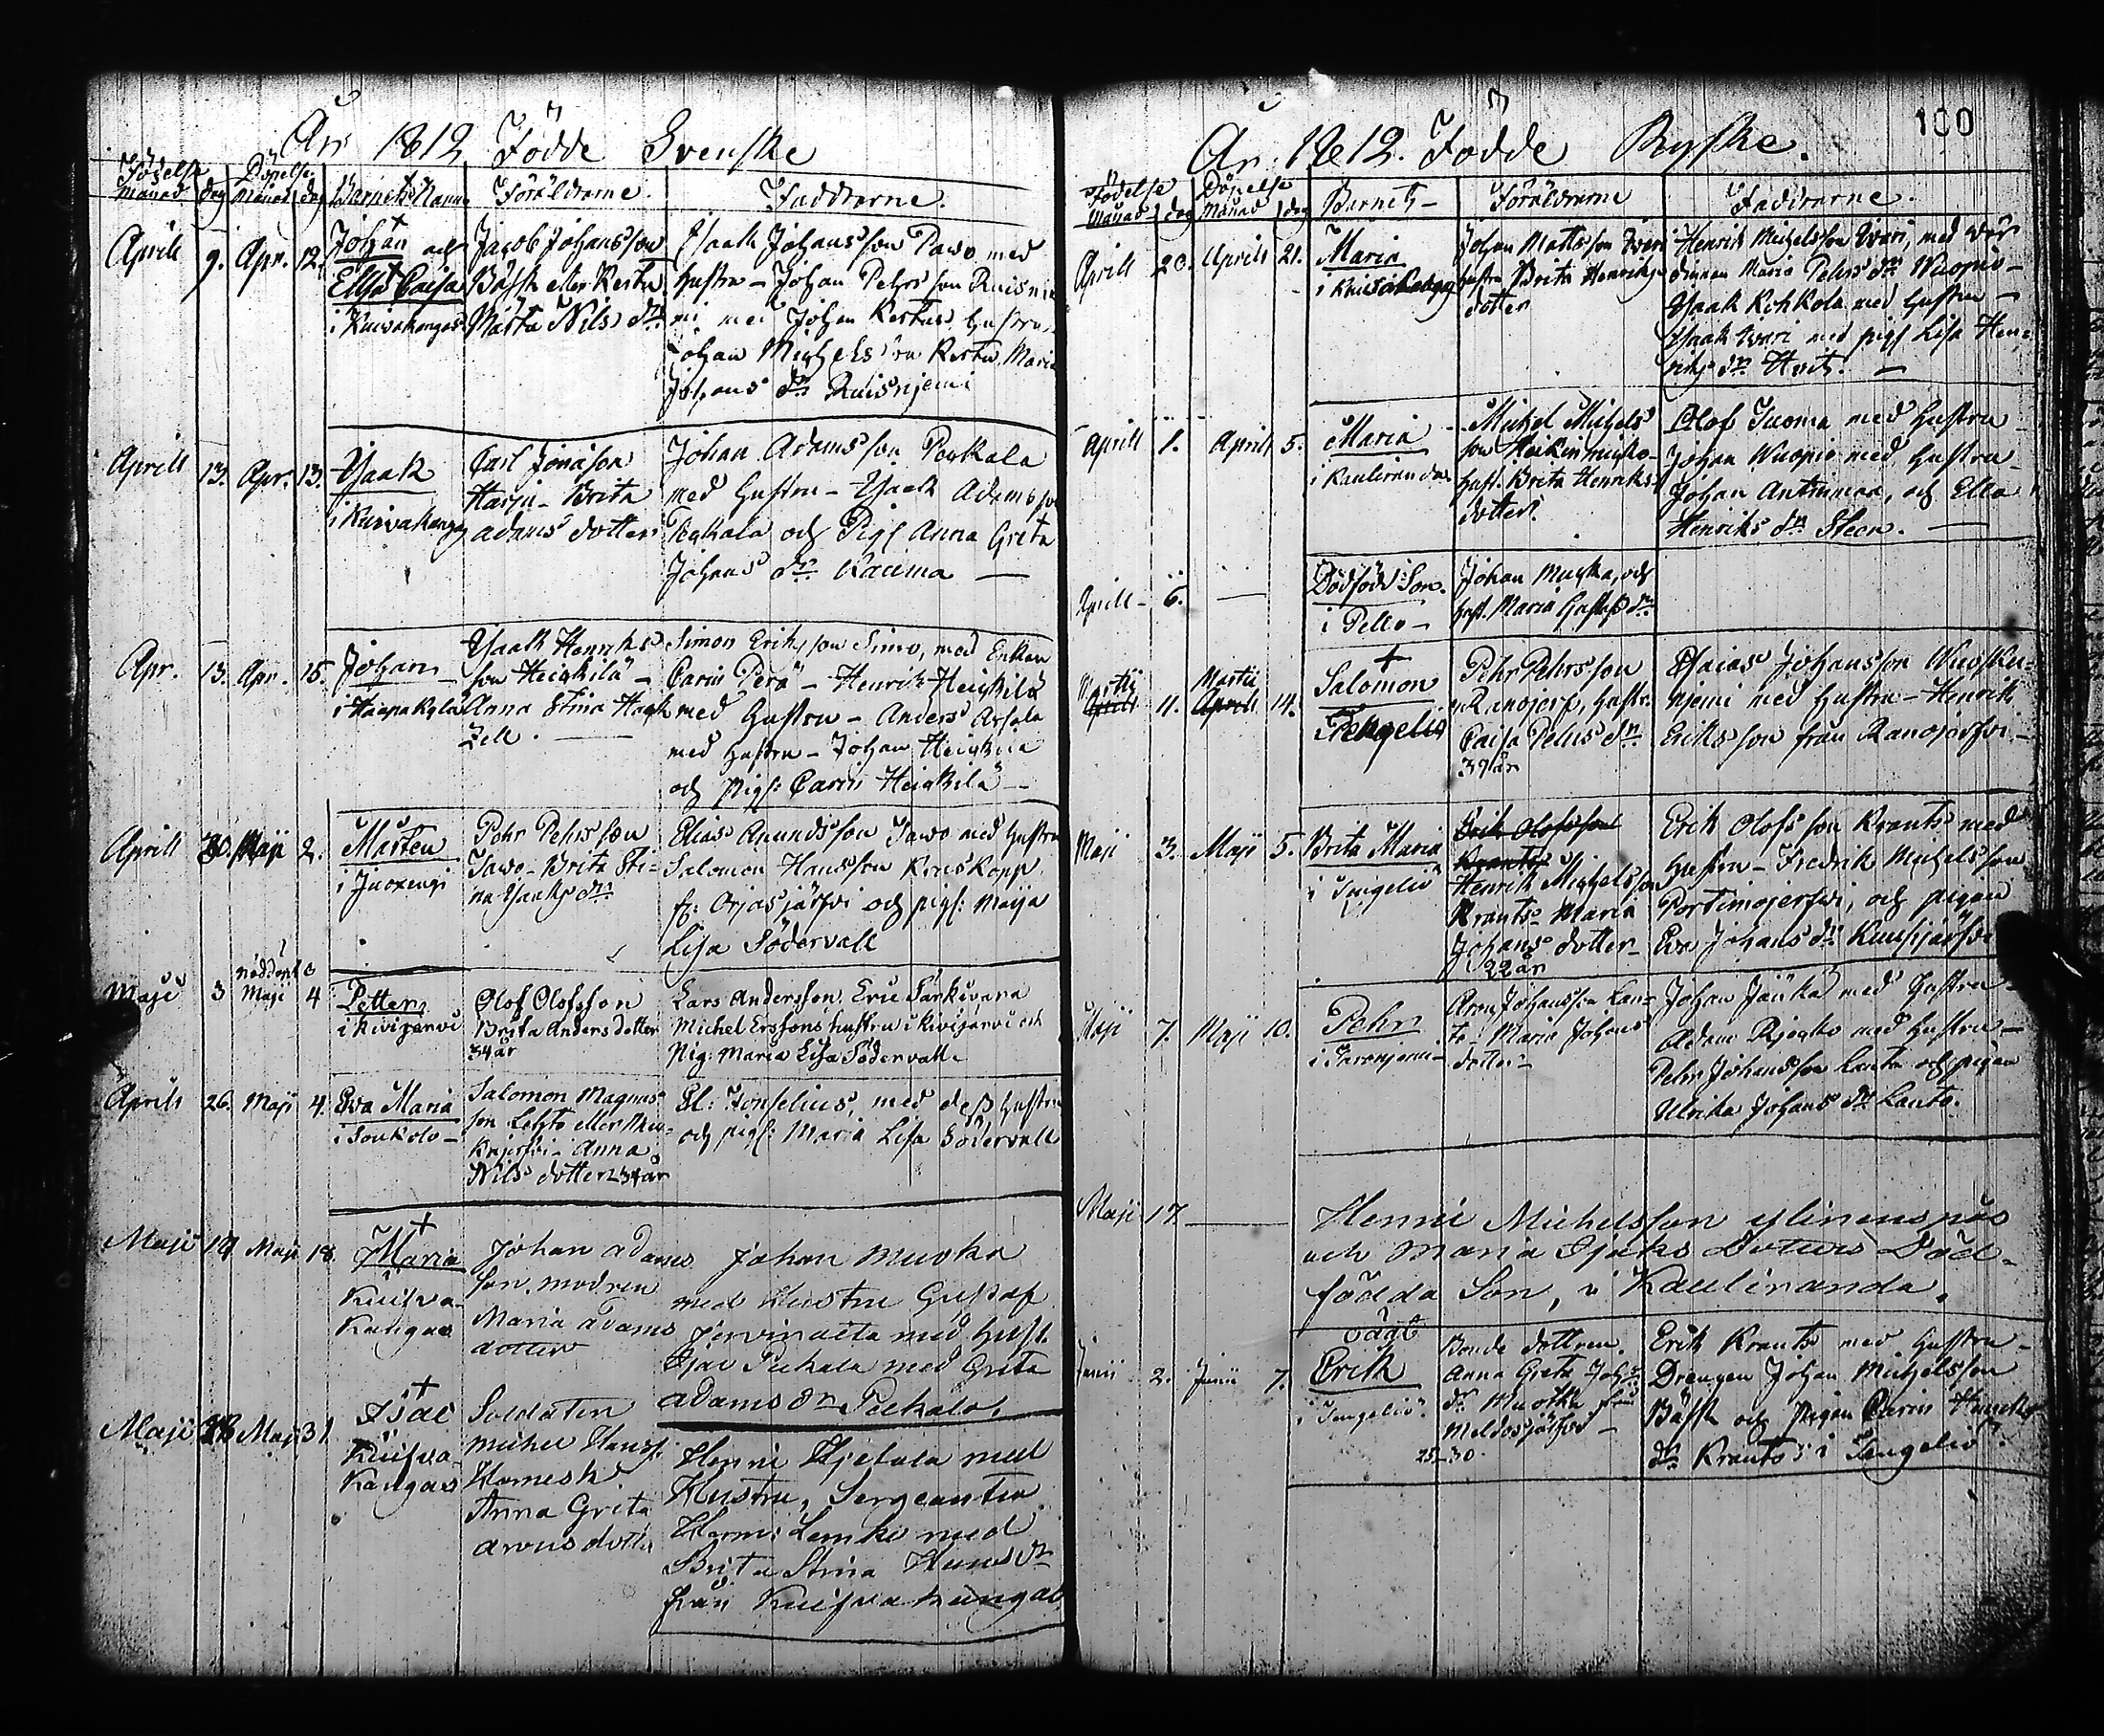 År 1812 Födde Svenske
Födelse Döpelse
Månad dag Månad dag Barnets Namn Föräldrarne. Faddrarne.
Aprill 9. Apr. 12. Johan och
Ellsa Caisa
i Kuivakangas
Jacob Johansson
Bäsk eller Kestu
Märta Nils dr
Isaak Johansson Pawo med
hustru - Johan Pehrsson Ruisnie
mi med Johan Kestus hustru
Johan Michelsson Kestu, Maria
Johans dr Ruisnjemi
Aprill 13. Apr. 13. Isaak
i Kuivakangas
Carl Jönsson
Harju - Brita
Adams dotter
Johan Adamsson Peykala
med hustru - Isaak Adamsson
Peykala och Pig. Anna Greta
Johans dr Kauma
Apr. 13. Apr. 15. Johan
i Haapakyla
Isaak Henriks
son Heickilä -
Anna Stina Hack
zell.
Simon Eriksson Simo, med Enkan
Carin Perä - Henrik Heickilä
med hustru - Anders
med hustru - Johan Heickilä
och pig: Carin Heickilä -
Aprill 30. Maji 2. Mårten
i Juoxengi
Pehr Pehrsson
Jawo - Brita Sti-
na Isaks dr
Elias Anundsson Jawo med hustru
Salomon Hansson Kexskopp
fr: Orjasjärfvi och pig: Maija
Lisa Södervall
Maji 3 nöddöpt 3
Maji 4 Petter
i Kivijarvi
Olof Olofsson
Brita Anders dotter
34 år
Lars Andersson, Eric Särkivara
Michel Erssons hustru i Kivijärvi och
Pig: Maria Lisa Södervall.
Aprill 26. Maji 4. Eva Maria
i Soukolo -
Salomon Magnus
son Lehto eller
- Anna
Nils dotter 34 år
El: Fonselius, med dess hustru
och pig: Maria Lisa Södervall
Maji 17 Maji 18. Maria
Kuifva-
Kangas
Johan Adams
son, modren
Maria Adams
dotter
Johan Muoka
med Hustru Gustaf
Jervinaita med hust.
Isac Piekala med Greta
Adams dr Piekalo.
Maji 28 Maji 31 Isac
Kuifva-
Kangas
Soldaten
Michel Hanss:
Harnesk
Anna Greta
Arvus dotter
Henric Hjetala med
Hustru, Sergeanten
Herm: Lemke med
Brita Stina Hans dr
från Kuifvakangas
100
År 1812. Födde Ryske.
Födelse Döpelse
Månad dag Månad dag Barnets - Föräldrarne Faddrarne.
Aprill 20. Aprill 21. Maria
i Kuivakangas
Johan Mattsson Wari
hustru Brita Henriks
dotter
Henrik Michelsson Wari, med wär
dinnan Maria Pehrs dr Wuopio -
Isaak Kohkola med hustru -
Isaak Wari med pig. Lisa Hen-
riks dr Hvit. -
Aprill 1. Aprill 5. Maria
i Kauliranda
Michel Michels
son Heikinniesko-
hust. Brita Henriks
dotter.
Olof Tuoma med hustru
Johan Wuopio med hustru
Johan Antinmaa, och Ella
Henriks dr Steen. -
Aprill - 6. - Dödfödd Son.
i Pello -
Johan Muska, och
hust. Maria Gustafs dr
Martij
Aprill 11. Martii
Aprill 14. Salomon
i Tengeliö
Pehr Pehrsson
Ranojerf, hustr.
Caisa Pehrs dr
39 år
Esaias Johansson Wuosku-
njemi med hustru - Henrik
Eriksson från Ranojärfvi. -
Maji 3. Maji 5. Brita Maria
i Tengeliö
Erik Olofsson
Krants
Henrik Michelsson
Krants - Maria
Johans dotter -
22 år
Erik Olofsson Krants med
hustru - Fredrik Michelsson
Portimojerfvi, och pigan
Eva Johans dr Kuusijärfvi
Maji 7. Maji 10. Pehr
i Turonjemi -
Aron Johansson Lan-
to - Maria Johans
dotter -
Johan Jänka med hustru -
Adam Rjoykko med hustru -
Pehr Johansson Lanto och pigan
Ulrika Johans dr Lanto.
Maji 17. - Henric Michelsson ylinenpää
och Maria Isaks Dotters Död-
födda Son, i Kauliranda.
Junii 2. Junii 7. Oäct
Erik
i Tengeliö
Bonde dottren.
Anna Greta Johans
dr Muotka från
Meldosjärfvi -
25-30.
Erik Krants med hustru -
Drengen Johan Michelsson
Bäsk och pigan Carin Henriks
dr Krants i Tengeliö